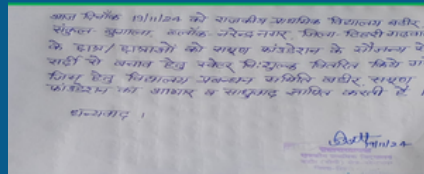 आज दिनाँक 19/11/24 को राजकीय प्राथमिक विद्यालय खदीर
संकुल ब्लॉक नरेन्द्रनगर, जिला टिहरी गढ़वाल
के छात्र/छात्राओं को फांउडेशन के सौजन्य से
सर्दी से बचाव हेतु स्वेटर निःशुल्क वितरित किये गये
जिस हेतु विद्यालय प्रबन्धन समिति
फांउडेशन का आभार व साधुवाद ज्ञापित करती है।
धन्यवाद।
19/11/24